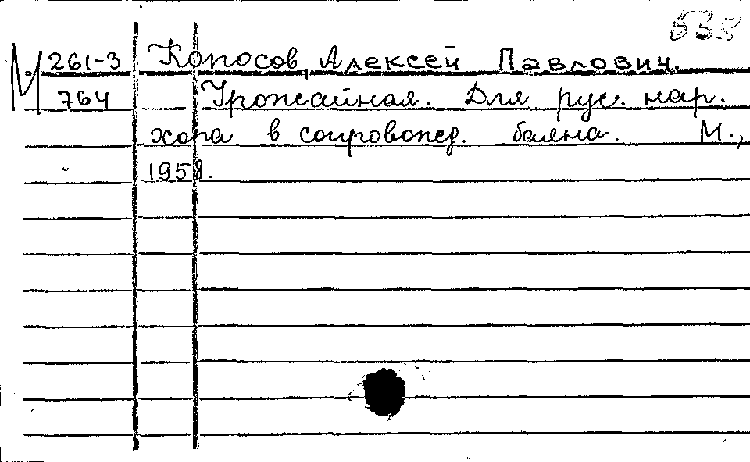 638
М 261-3 Копосов, Алексей Павлович.
764 Урожайная. Для рус. нар.
хора в сопровожд. баяна. М.,
1959.